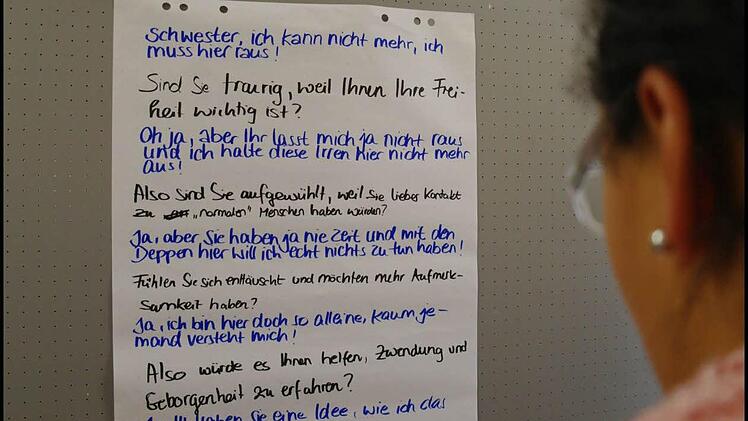 Schwester, ich kann nicht mehr, ich
muss hier raus!
Sind Se traurig, weil Ihnen Ihre Frei-
heit wichtig ist?
Oh ja, aber Ihr lasst mich ja nicht raus
und ich halte diese Irren hier nicht mehr
aus!
Also sind Sie aufgewühlt, weil Sie lieber Kontakt
zu "normalen" Menschen haben würden?
Ja, aber Sie haben ja nie Zeit und mit den
Deppen hier will ich echt nichts zu tun haben!
Fühlen Sie sich enttäuscht und möchten mehr Aufmerk-
samkeit haben?
Ja, ich bin hier doch so alleine, kaum je-
mand versteht mich!
Also würde es Ihnen helfen, Zuwendung und
Geborgenheit zu erfahren?
haben sie eine Idee, wie ich das